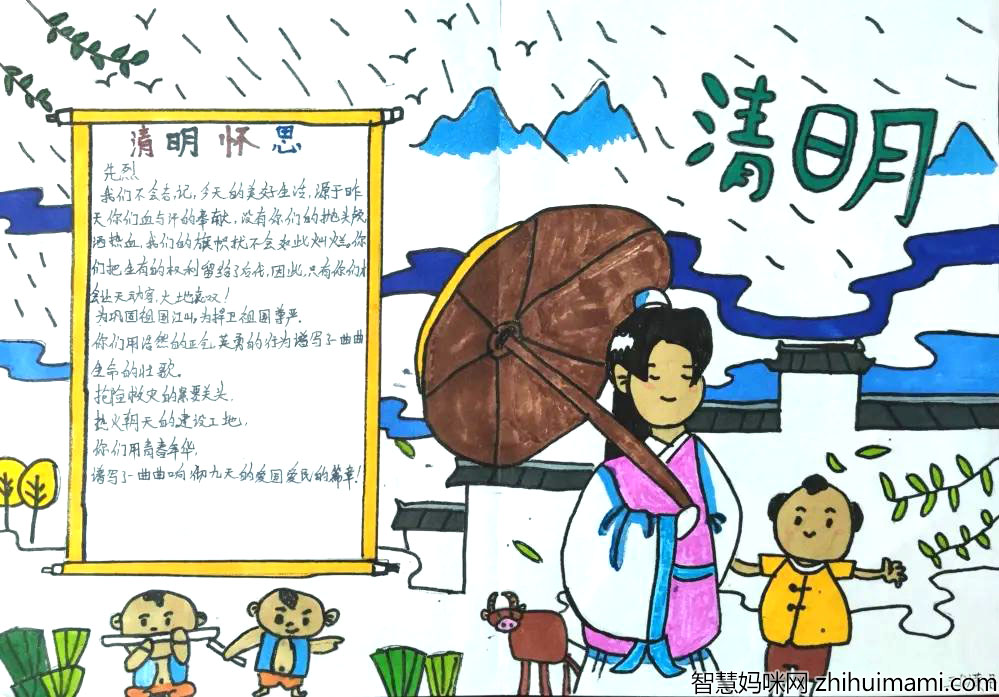 清明怀思
先烈
我们不会忘记,今天的美好生活,源于昨
天你们血与汗的奉献,没有你们的抛头颅
洒热血,我们的旗帜就不会如此灿烂。你
们把生存的权利留给了后代,因此,只有你们才
会让天动容,大地哀叹!
为巩固祖国江山,为捍卫祖国尊严.
你们用浩然的正气,英勇的行为谱写了一曲曲
生命的壮歌。
抢险救灾的紧要关头.
热火朝天的建设工地,
你们用青春年华,
谱写了一曲曲响彻九天的爱国爱民的篇章!
清明
智慧妈咪网 zhihuimami.com